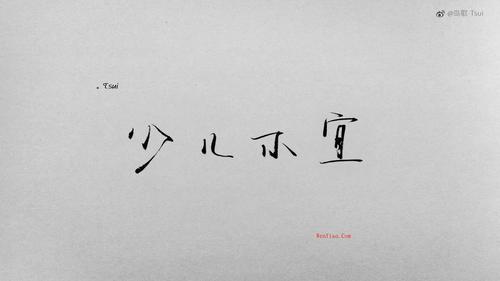 @岛歌-Tsui
。Tsui
少儿不宜
RenJiao.Com